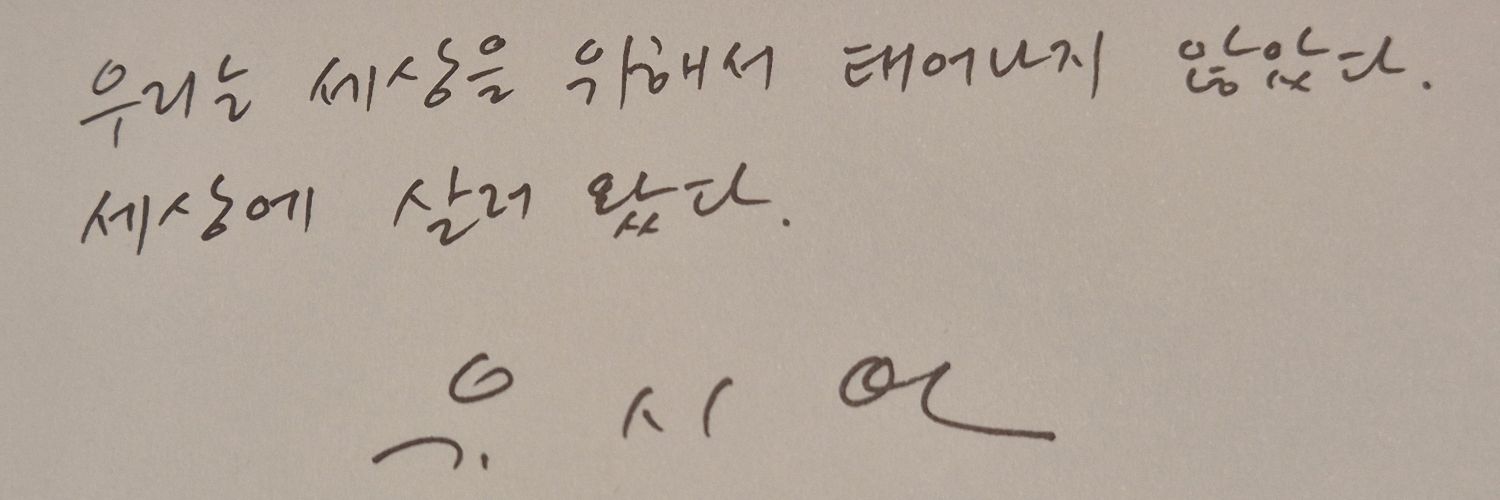 우리는 세상을 위해서 태어나지 않았다.
세상에 살러 왔다.